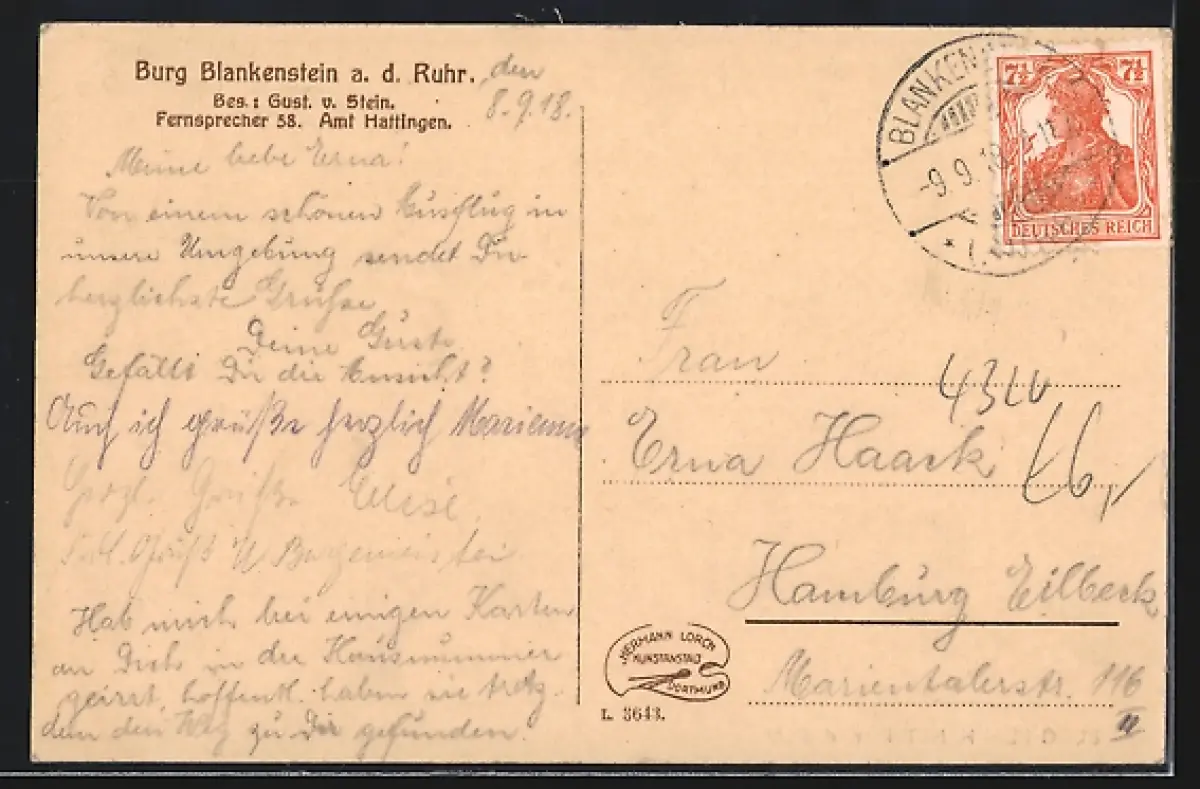 Burg Blankenstein a. d. Ruhr. den
Bes.: Gust. v. Stein. 8.9.18.
Fernsprecher 58. Amt Hattingen.
Meine liebe Erna!
Von einem schönen Ausflug in
unsere Umgebung sendet Dir
herzlichste Grüsse
Deine Guste
Gefällt Dir die Ansicht?
Auch ich grüße herzlich Marianne
Herzl. Grüße
Grüßt
Hab mich bei einigen Karten
an Dich in der Hausnummer
geirrt, hoffentl. haben sie trotz
dem den Weg zu Dir gefunden.
BLANKEN
-9.9.18.
7½ 7½
DEUTSCHES REICH
Frau
Erna Haack
Hamburg Eilbeck
Marientalerstr. 116
II
HERMANN LORCH
KUNSTANSTALT
DORTMUND
L. 3643.